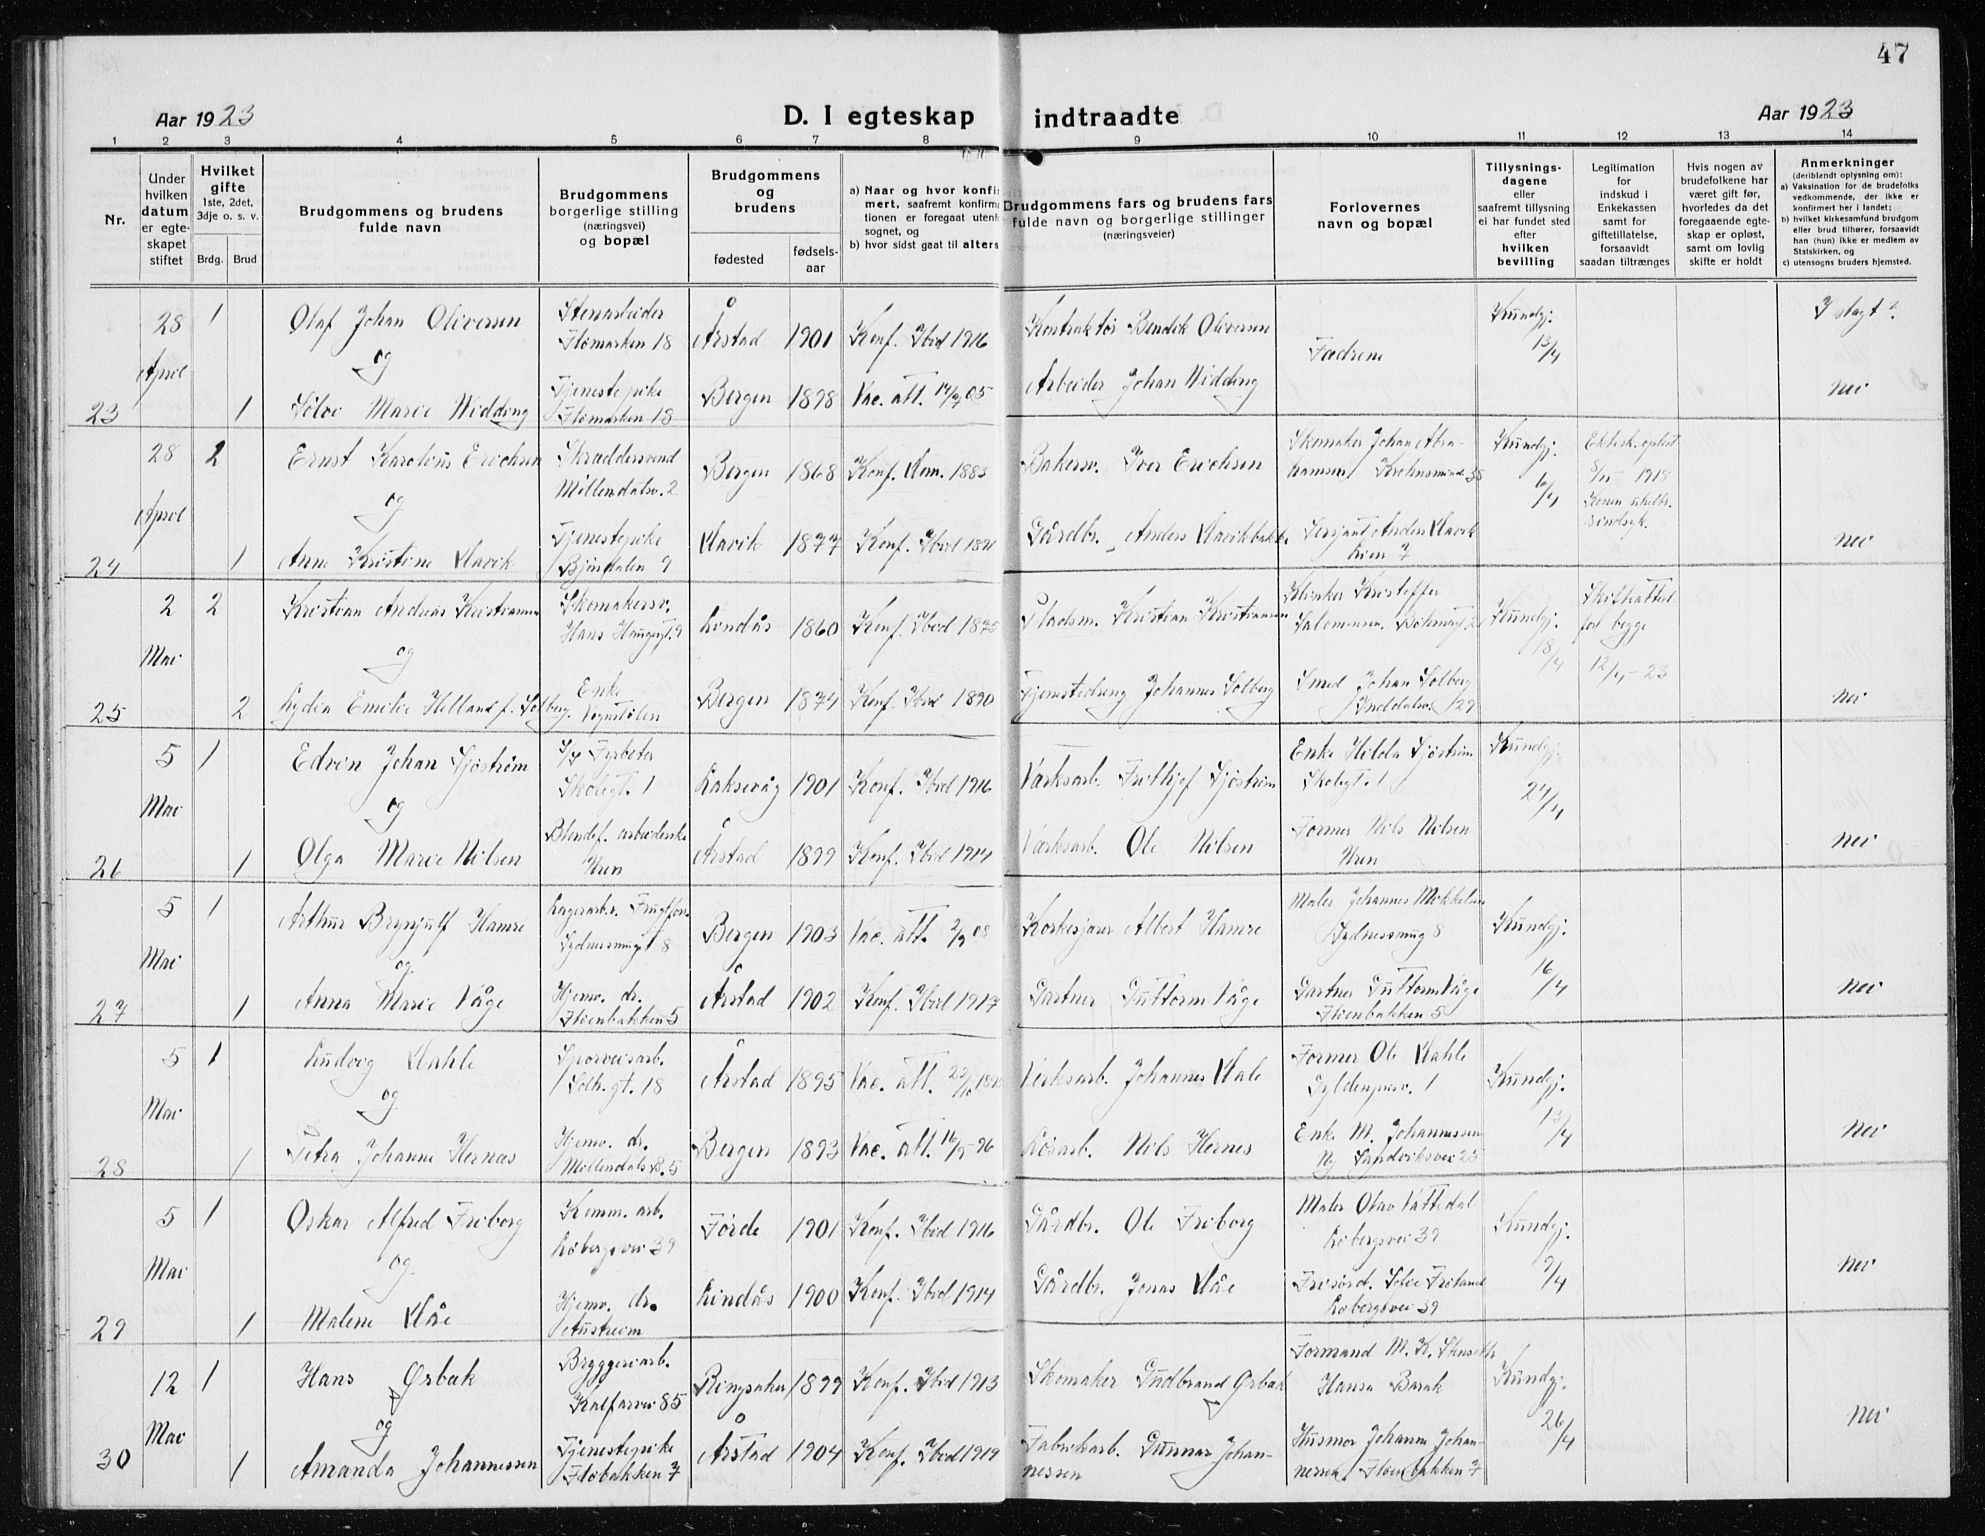 47
Aar 1923
D. I egteskap indtraadte
Aar 1923
1 2 3 4 5 6 7 8 9 10 11 12 13 14
Nr.
Under
hvilken
datum
er egte-
skapet
stiftet
Hvilket
gifte
1ste, 2det,
3dje o. s. v.
Brdg. Brud
Brudgommens og brudens
fulde navn
Brudgommens
borgerlige stilling
(næringsvei)
og bopæl
Brudgommens
og
brudens
fødested
fødsels-
aar
a) Naar og hvor konfi
mert, saafremt konfirma
tionen er foregaat utenf
sognet, og
b) hvor sidst gaat til alters
Brudgommens fars og brudens fars
fulde navn og borgerlige stillinger
(næringsveier)
Forlovernes
navn og bopæl
Tillysnings-
dagene
eller
saafremt tillysning
ei har fundet sted
efter
hvilken
bevilling
Legitimation
for
indskud i
Enkekassen
samt for
giftetillatelse,
forsaavidt
saadan tiltrænges
Hvis nogen av
brudefolkene har
været gift før,
hvorledes da det
foregaaende egte-
skap er opløst,
samt om lovlig
skifte er holdt
Anmerkninger
(deriblandt oplysning om):
a) Vaksination for de brudefolks
vedkommende, der ikke er
konfirmert her i landet;
b) hvilket kirkesamfund brudgom
eller brud tilhører, forsaavidt
han (hun) ikke er medlem av
Statskirken, og
c) utensogns bruders hjemsted.
23
28 April
1
Olaf Johan Oliversen
og
1
Sölvi Marie Widding
Stenarbeider
Flömarken 18
Tjenestepike
Flömarken 18
Årstad 1901 Konf. Ibid 1916
Bergen 1898 Vac. att.
Kontraktör Bendik Oliversen
Arbeider Johan Widding
Fædrene
Kundgj.
13/4
I slagt?
nei
24
28 April
2
Ernst Karolius Erichsen
og
1
Anne Kristine Havik
Skræddersvend
Möllendalsv. 2
Tjenestepike
Björndalen 9
Bergen 1868 Konf. 1883
Havik 1877 Konf. Ibid 1891
Bakersv. Iver Erichsen
Gårdbr. Anders Havikbakke
Skomaker Johan Abra-
hamsen Krohnsminde 38
Sersjant Anders Havik
Lien 7
Kundgj.
6/4
Ektesk. oplöst
1918
nei
25
2 Mai
2
Kristian Andreas Kristiansen
og
2
Lydia Emilie Helland f. Solberg.
Skomakersv.
Hans Haugesgt. 9
Enke
Vognstölen
Lindås 1860 Konf. Ibid 1875
Bergen 1874 Konf. Ibid 1890
Pladsm. Kristian Kristiansen
Tjenestedreng Johannes Solberg
Klinker Kristoffer
Salemonsen
Smed Johan Solberg
Kundgj.
18/4
Skifteattest
for begge
12/4-23
nei
26
5 Mai
1
Edvin Johan Sjöström
og
1
Olga Marie Nilsen
S/S Fyrböter
Skolegt. 1
Blondef. arbeiderske
Uren
Laksevåg 1901 Konf. Ibid 1916
Årstad 1899 Konf. Ibid 1914
Værksarb. Frithjof Sjöström
Værksarb. Ole Nilsen
Enke Hilda Sjöström
Skolegt. 1
Former Nils Nilsen
Uren
Kundgj.
24/4
nei
27
5 Mai
1
Arthur Brynjulf Hamre
og
1
Anna Marie Våge
Lagerarb. v. Frugtfor.
Sydnessmugt 8
Hjemv. dr.
Flöenbakken 5
Bergen 1903 Vac. att. 2/9 08
Årstad 1902 Konf. Ibid 1917
Korkesjærer Albert Hamre
Gartner Guttorm Våge
Maler Johannes Mikkelsen
Sydnessmug 8
Gartner Guttorm Våge
Flöenbakken 5
Kundgj.
16/4
nei
28
5 Mai
1
Ludvig Hahle
og
1
Petra Johanne Hernæs
Sporveisarb.
Solh. gt. 18
Hjemv. dr.
Möllendalsb. 5
Årstad 1895 Vac. att.
Bergen 1893 Vac. att. 16/5-96
Verksarb. Johannes Hale
Lösarb. Nils Hernes
Former Ole Hahle
Gyldenprisv. 1
Enke M. Johannessen
Ny Sandviksvei 25
Kundgj.
13/4
nei
29
5 Mai
1
Oskar Alfred Friborg
og
1
Malene Håe
Komm. arb.
Löbergsvei 39
Hjemv. dr.
Austreim
Förde 1901 Konf. Ibid 1916
Lindås 1900 Konf. Ibid 1914
Gårdbr. Ole Friborg
Gårdbr. Jonas Håe
Maler Olav Vattedal
Löbergsvei 39
Löbergsvei 39
Kundgj.
9/4
nei
30
12 Mai
1
Hans Ørbæk
og
1
Amanda Johannessen
Bryggeriarb.
Kalfarvei 85
Tjenestepike
Flöbakken 7
Ringsaker 1899 Konf. Ibid 1913
Årstad 1904 Konf. Ibid 1919
Skomaker Gudbrand Ørbæk
Fabrikarb. Gunnar Johan-
nessen
Formand M. K.
Hansa Barak
Husmor Johanne Johan-
nessen, Flöenbakken 7
Kundgj.
26/4
nei